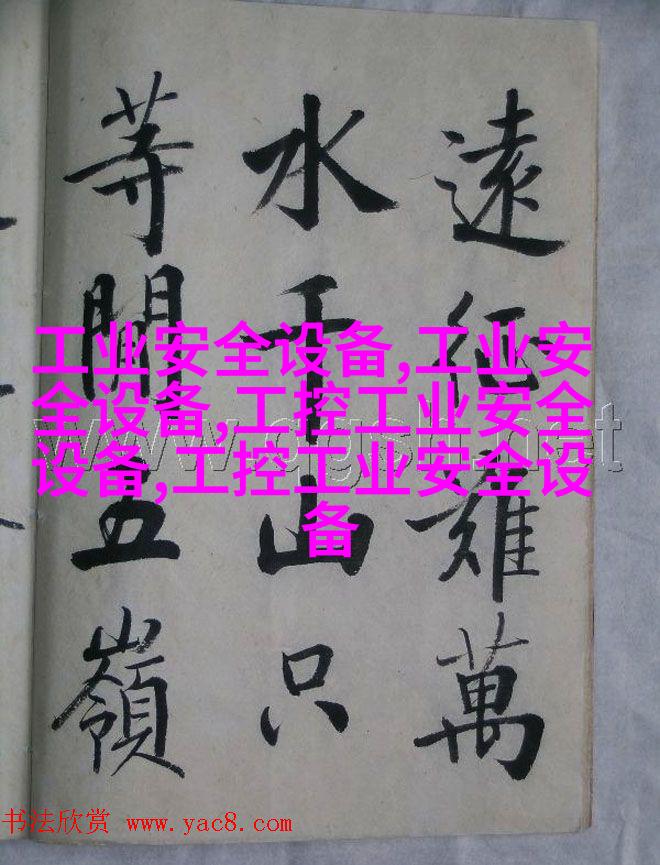 遠征难萬
水千山只
等閒五嶺
工业安全设备,工业安
全设备,工控工业安全
设备,工控工业安全设
备
书法欣赏 www.yac8.com